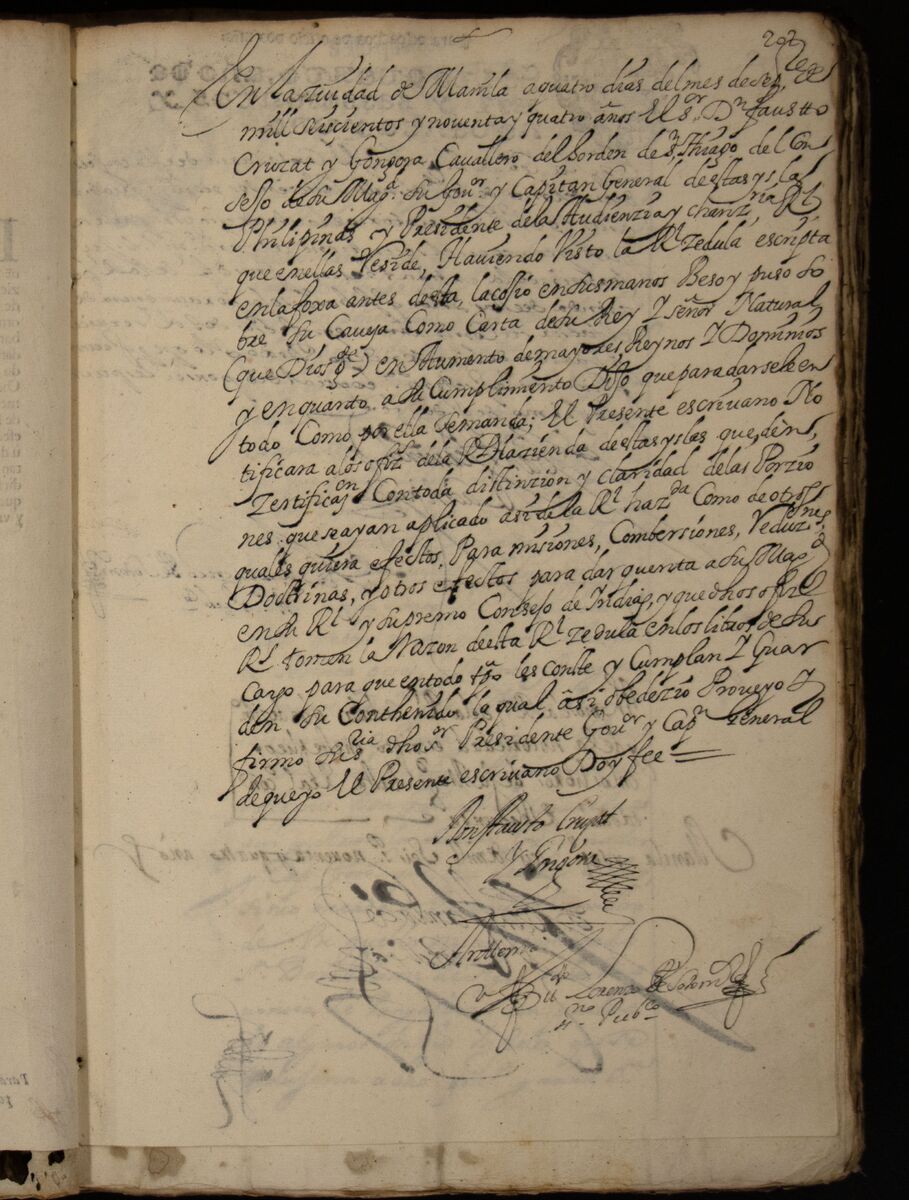 202
En la ziudad de Manila a quatro dias del mes de sep.re de
mill seiscientos y noventa y quatro años El s.or D.n faustto
Cruzat y Gongora Cavallero del horden de s.n thiago del Con
sejo de su Mag.d su gov.or y Capitan General de estas yslas
Philipinas y Presidente de la Audienzia y chanz.ria R.l
que en ellas Reside, Haviendo Visto la R.l zedula escripta
en la foxa antes desta, la cojio en sus manos Beso y puso so
bre su Caveza Como Carta de su Rey Y señor Natural
(que Dios g.de) en Aumento de mayores Reynos Y Dominios
y en quanto a su Cumplimiento Dijo que para darsele en
todo Como por ella se manda; El Presente escrivano No
tificara a los ofiz.s de la R.l Hazienda de estas yslas que, den
Zertificaz.on Con toda distinzion y claridad de las Porzio
nes que se ayan aplicado asi de la R.l haz.da Como de otros
quales quiera efectos, Para misiones, Combersiones, Reduz.nes
Doctrinas, y otros efectos para dar quenta a Su Mag.d
en su R.l y Supremo Consejo de Indias, y que dhos ofiz.s
R.s tomen la Razon desta R.l zedula en los libros de su
cargo para que en todo tpo les conste y Cumplan Y Guar
den, su Conthenido la qual asi obedezio Proveyo Y
firmo su s.ria dho s.or Presidente Gov.or y Cap.n General
de que yo El Presente escrivano Doy fee
Don fausto Cruzat
Y Gongora
Antte mi
Lorenzo
ss.no Pub.co